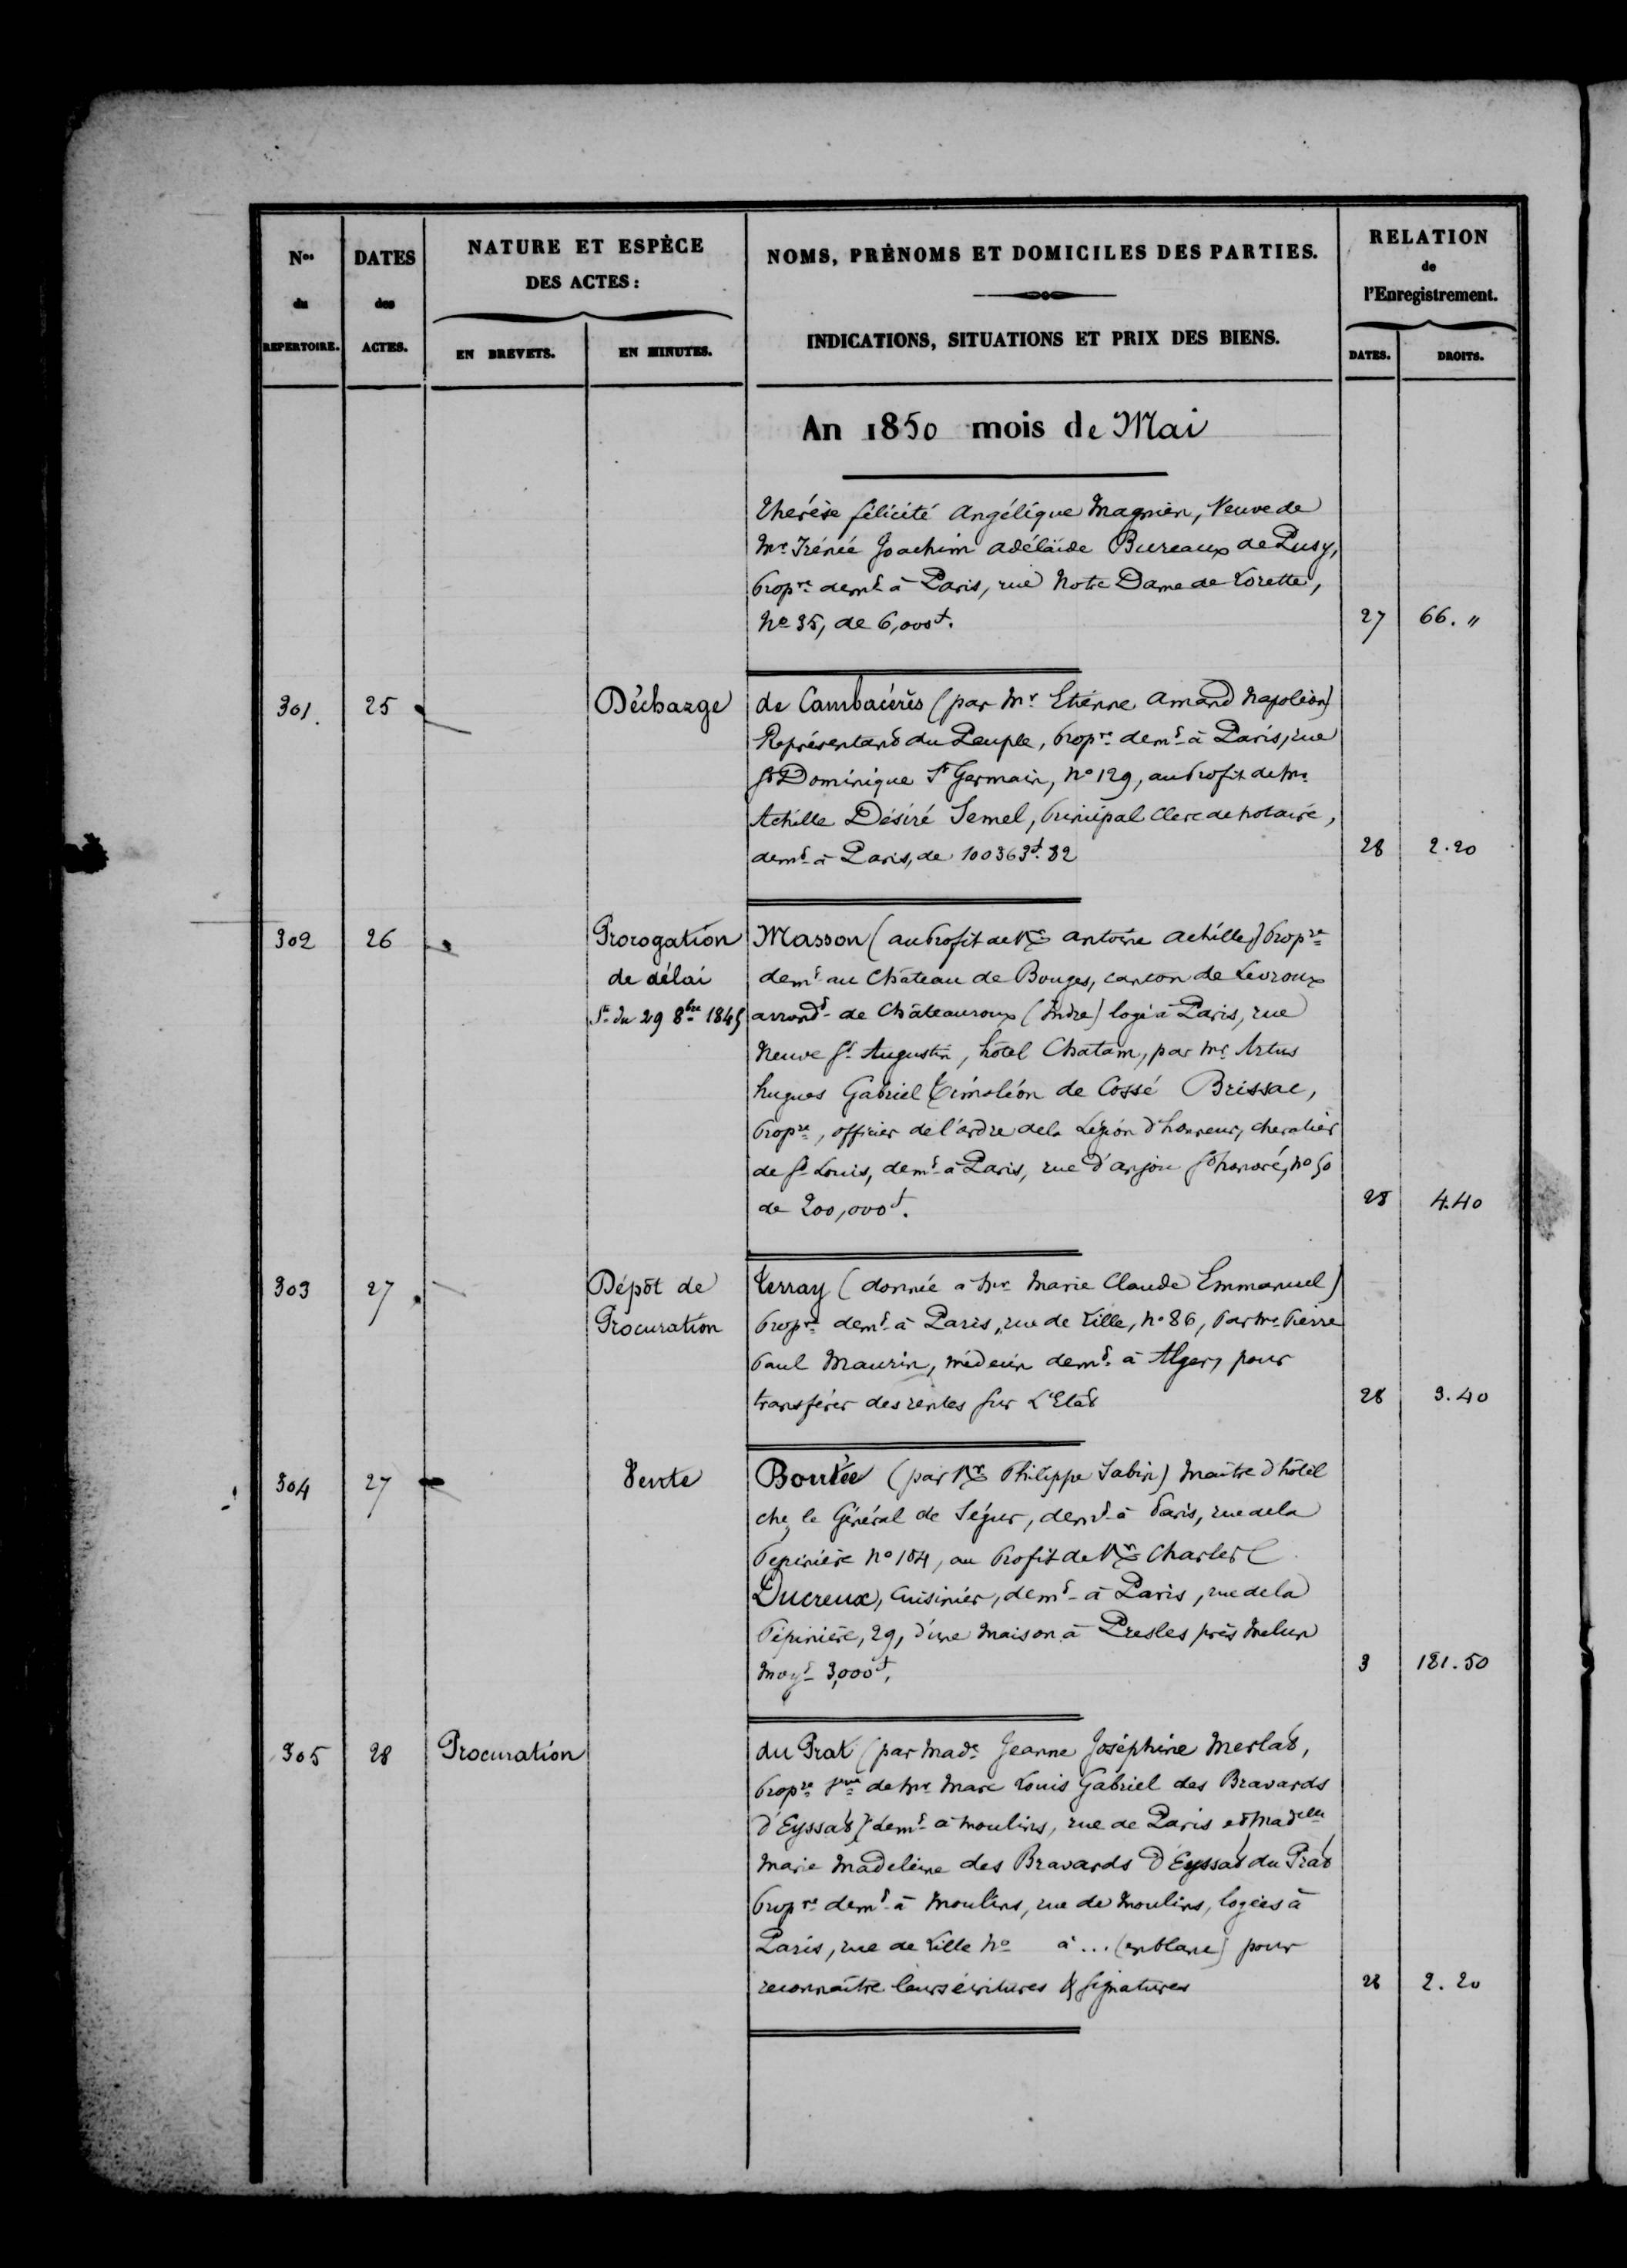 Nos du REPERTOIRE.
DATES des ACTES.
NATURE ET ESPÈCE
DES ACTES :
EN BREVETS.
EN MINUTES.
NOMS, PRÉNOMS ET DOMICILES DES PARTIES.
INDICATIONS, SITUATIONS ET PRIX DES BIENS.
RELATION
de
l'Enregistrement.
DATES.
DROITS.
An 1850 mois de Mai
Thérèse félicité Angélique Magnien, Veuve de
Mr Irénée Joachim adélaïde Bureaux de Pusy,
propre demt à Paris, rue Notre Dame de Lorette,
No 35, de 6,000f. 27 66. "
301. 25 Décharge de Cambacérès (par Mr Etienne Amand Napoléon)
Représentant du Peuple, propre demt à Paris, rue
St Dominique St Germain, No 129, au profit de Mr
Achille Désiré Semel, principal Clerc de notaire,
demt à Paris, de 100363f. 82 28 2.20
302 26 Prorogation Masson (au profit de Mr antoine achille) propre
de délai demt au Château de Bouges, canton de Levroux
St du 29 8bre 1845 arrondt de Châteauroux (Indre) logé à Paris, rue
Neuve St Augustin, hôtel Chatam, par Mr Artus
hugues Gabriel Timoléon de Cossé Brissac,
propre, officier de l'ordre de la Légion d'honneur, chevalier
de St Louis, demt à Paris, rue d'anjou St honoré, No 50
de 200,000f. 28 4.40
303 27 Dépôt de Terray (donnée à Mr Marie Claude Emmanuel)
Procuration propre demt à Paris, rue de Lille, No 86, par Mr Pierre
Paul Maurin, médecin demt à Alger, pour
transférer des rentes sur L'Etat 28 3.40
304 27 Vente Boutée (par Mr Philippe Sabin) maître d'hôtel
chez le Général de Ségur, demt à Paris, rue de la
Pepinière No 104, au profit de Mr Charles
Ducreux, cuisinier, demt à Paris, rue de la
Pépinière, 29, d'une maison à Presles près Melun
moyt 3,000f. 3 181.50
305 28 Procuration du Prat (par made Jeanne Joséphine Merlat,
propre Veuve de Mr Marc Louis Gabriel des Bravards
d'Eyssat) demt à Moulins, rue de Paris et Madelle
Marie Madeleine des Bravards D'Eyssat du Prat
propre demt à Moulins, rue de Moulins, logées à
Paris, rue de Lille No à ... (en blanc) pour
reconnaître leurs écritures & signatures 28 2.20